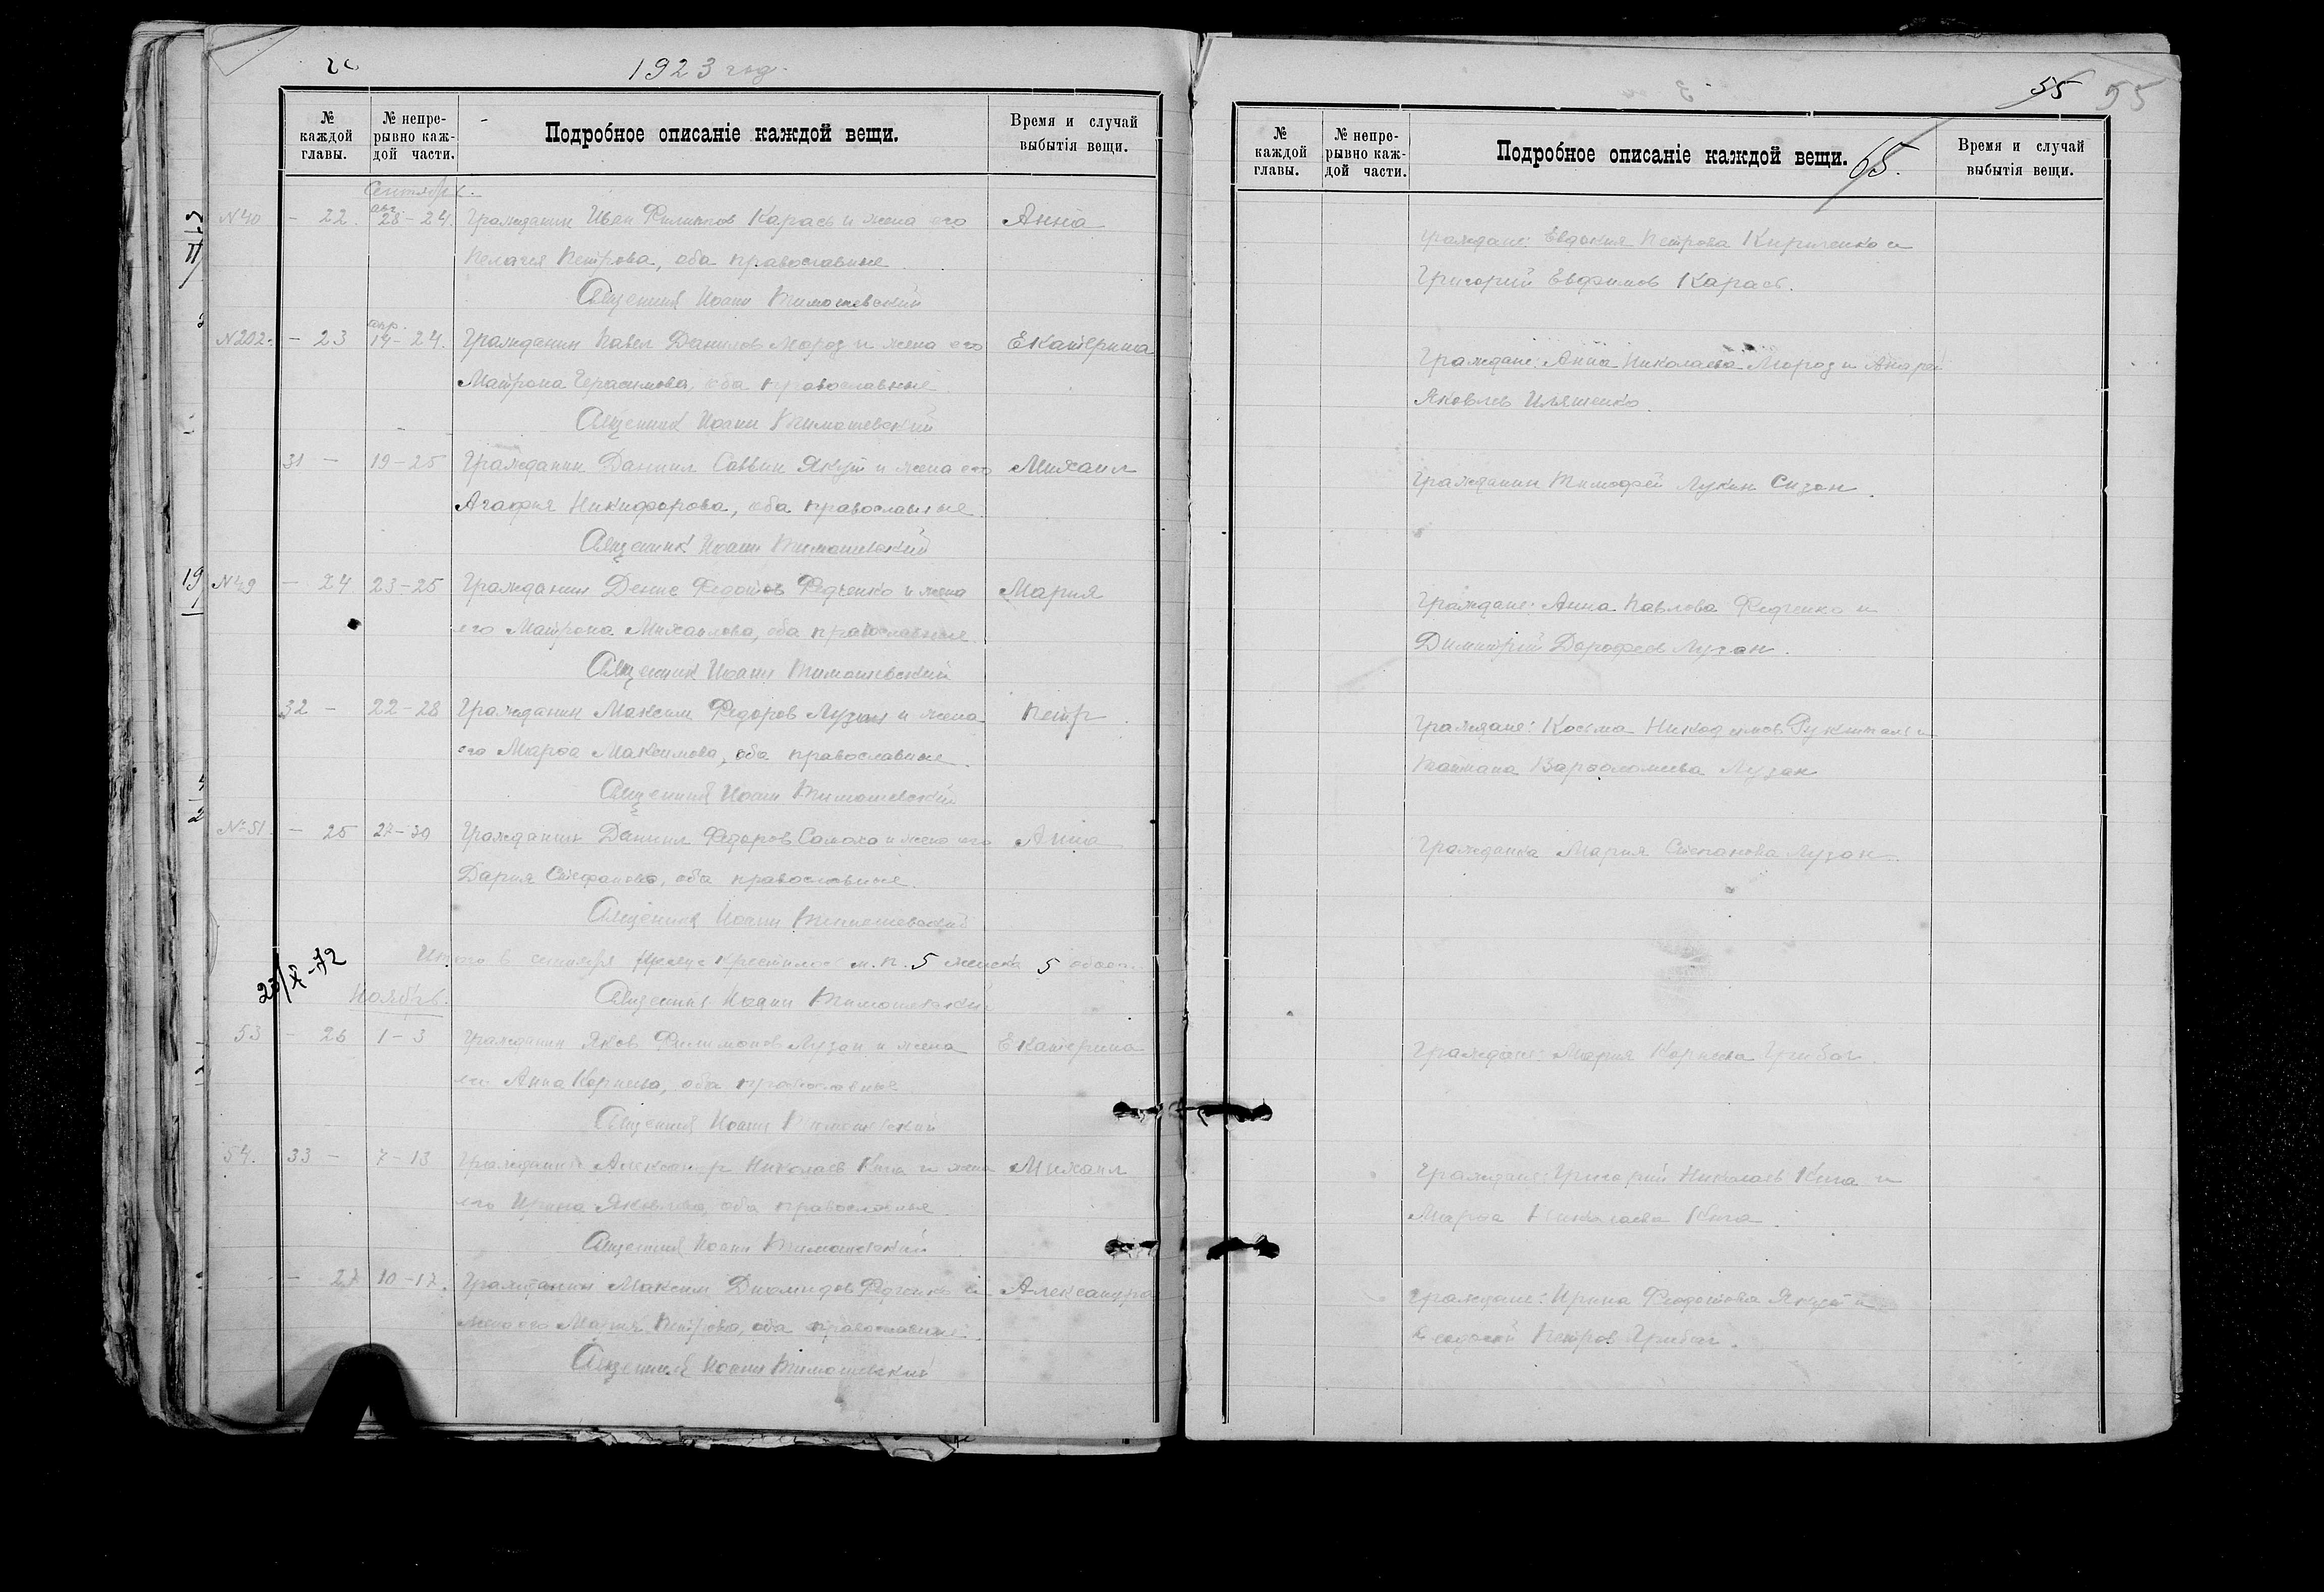 1923 год.
№ каждой главы.
№ непрерывно каждой части.
Подробное описаніе каждой вещи.
Время и случай выбытія вещи.
Сентябрь.
№40 - 22. авг. 28-24. Гражданин Иван Филиппов Карась и жена его Анна
Пелагея Петрова, оба православные.
Священник Иоанн Тимошевский
№202. - 23 14-24. Гражданин Павел Данилов Мороз и жена его Екатерина
Матрона Герасимова, оба православные.
Священник Иоанн Тимошевский
31 - 19-25 Гражданин Даниил Саввин Якут и жена его Михаил
Агафия Никифорова, оба православные.
Священник Иоанн Тимошевский
19 №49 - 24 23-25 Гражданин Денис Федотов Федченко и жена Мария
его Матрона Михайлова, оба православные.
Священник Иоанн Тимошевский
32 - 22-28 Гражданин Максим Федоров Лузан и жена Петр.
его Марфа Максимова, оба православные.
Священник Иоанн Тимошевский
№51. - 25 27-30 Гражданин Даниил Федоров Солоха и жена его Анна
Дария Стефанова, оба православные.
Священник Иоанн Тимошевский
23/X-72
Итого в сентябре месяце крестилось м.п. 5 женска 5 обоег.
Ноябрь. Священник Иоанн Тимошевский
53 - 26 1-3 Гражданин Яков Филимонов Лузан и жена Екатерина
его Анна Корнеева, оба православные
Священник Иоанн Тимошевский
54. 33 - 7-13 Гражданин Александр Николаев Кича и жена Михаил
его Ирина Яковлева, оба православные
Священник Иоанн Тимошевский
- 27 10-17. Гражданин Максим Диомидов Федченко и Александра
жена его Мария Петрова, оба православные.
Священник Иоанн Тимошевский
55 55
№ каждой главы.
№ непрерывно каждой части.
Подробное описаніе каждой вещи. 65.
Время и случай выбытія вещи.
Граждане: Евдокия Петрова Кириченко и
Григорий Евфимов Карась.
Граждане: Анна Николаева Мороз и Андрей
Яковлев Ильяшенко.
Гражданин Тимофей Лукин Сизон.
Граждане: Анна Павлова Федченко и
Димитрий Дорофеев Лузан.
Граждане: Косьма Никодимов и
Варфоломеева Лузан
Гражданка Мария Степанова Лузан.
Граждане: Мария Корнеева Грибач.
Граждане: Григорий Николаев Кича и
Марфа Николаева Кича.
Граждане: Ирина Феодотова Якут и
Петров Грибач.